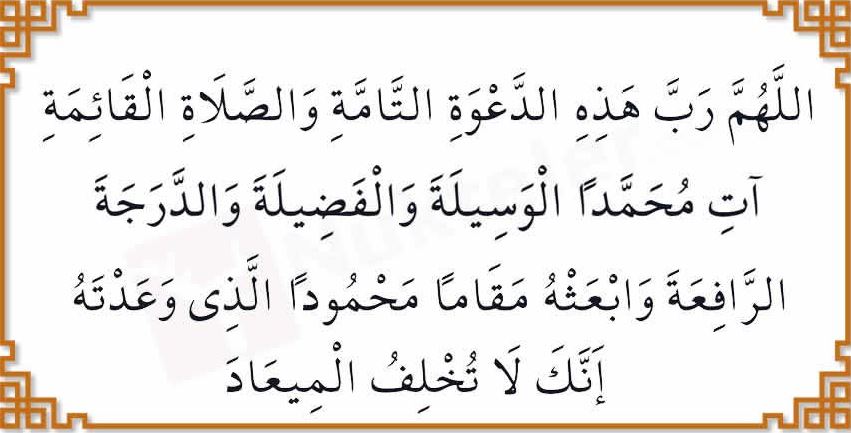 اللَّهُمَّ رَبَّ هَذِهِ الدَّعْوَةِ التَّامَّةِ وَالصَّلَاةِ الْقَائِمَةِ
آتِ مُحَمَّدًا الْوَسِيلَةَ وَالْفَضِيلَةَ وَالدَّرَجَةَ
الرَّافِعَةَ وَابْعَثْهُ مَقَامًا مَحْمُودًا الَّذِى وَعَدْتَهُ
إَنَّكَ لَا تُخْلِفُ الْمِيعَادَ